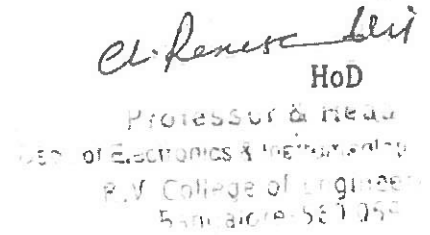 HoD
Professor & Head
of Electronics & Instrumentation
R.V College of Engineer
Bangalore-560 059